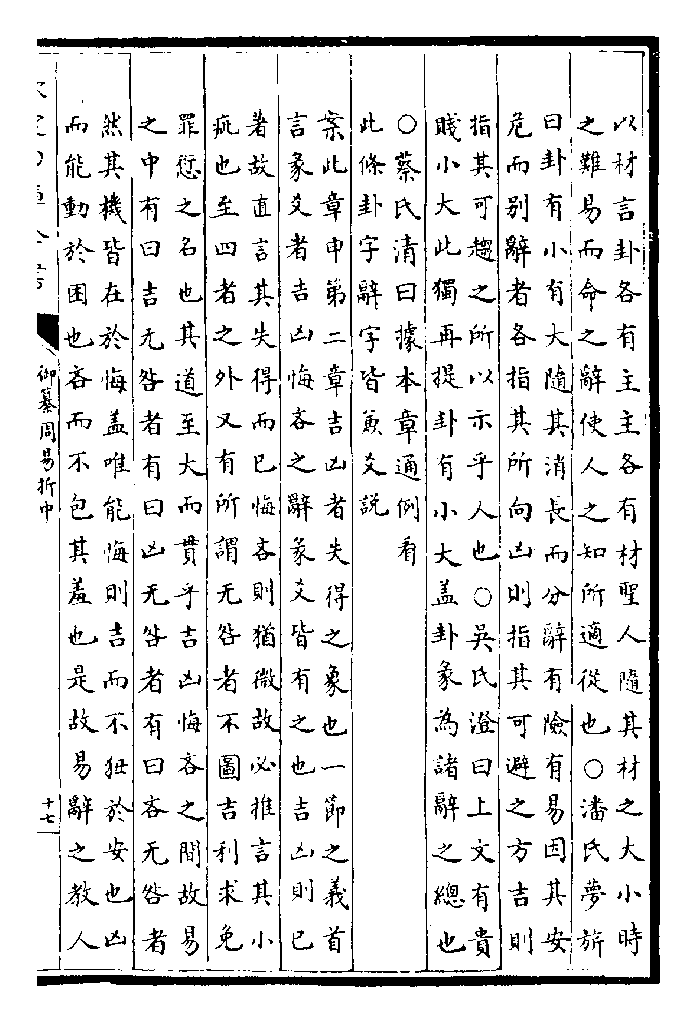 以材言卦各有主主各有材聖人隨其材之大小時
之難易而命之辭使人之知所適從也○潘氏夢旂
曰卦有小有大隨其消長而分辭有險有易因其安
危而别辭者各指其所向凶則指其可避之方吉則
指其可趨之所以示乎人也○吳氏澄曰上文有貴
賤小大此獨再提卦有小大盖卦彖為諸辭之總也
○蔡氏清曰據本章通例看
此條卦字辭字皆兼爻説
案此章申第二章吉凶者失得之象也一節之義首
言彖爻者吉凶悔吝之辭彖爻皆有之也吉凶則已
著故直言其失得而已悔吝則猶微故必推言其小
疵也至四者之外又有所謂无咎者不圖吉利求免
罪愆之名也其道至大而貫乎吉凶悔吝之間故易
之中有曰吉无咎者有曰凶无咎者有曰吝无咎者
然其機皆在於悔盖唯能悔則吉而不狃於安也凶
而能動於困也吝而不包其羞也是故易辭之教人
御纂周易折中
十七